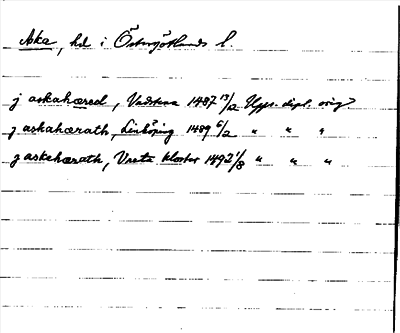 Aska, hd i Östergötlands l.
j askahæred, Vadstena 1487 13/2 Upps. dipl. orig
j askahærath, Linköping 1489 6/2 " " "
j askehærath, Vreta kloster 1492 1/8 " " "